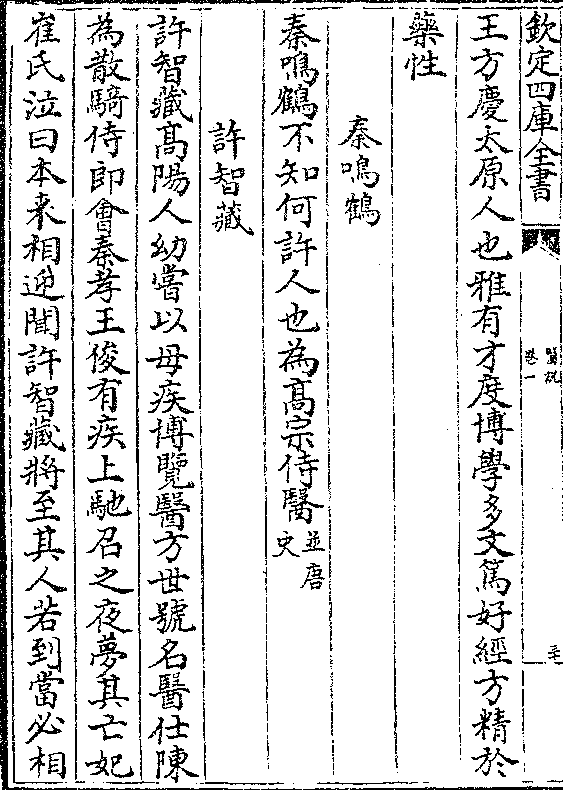 欽定四庫全書
醫說
卷一
王方慶太原人也雅有才度博學多文篤好經方精於
藥性
秦鳴鶴
秦鳴鶴不知何許人也為高宗侍醫並唐
史
許智藏
許智藏高陽人幼嘗以母疾博覽醫方世號名醫仕陳
為散騎侍郎會秦孝王俊有疾上馳召之夜夢其亡妃
崔氏泣曰本來相迎聞許智藏將至其人若到當必相